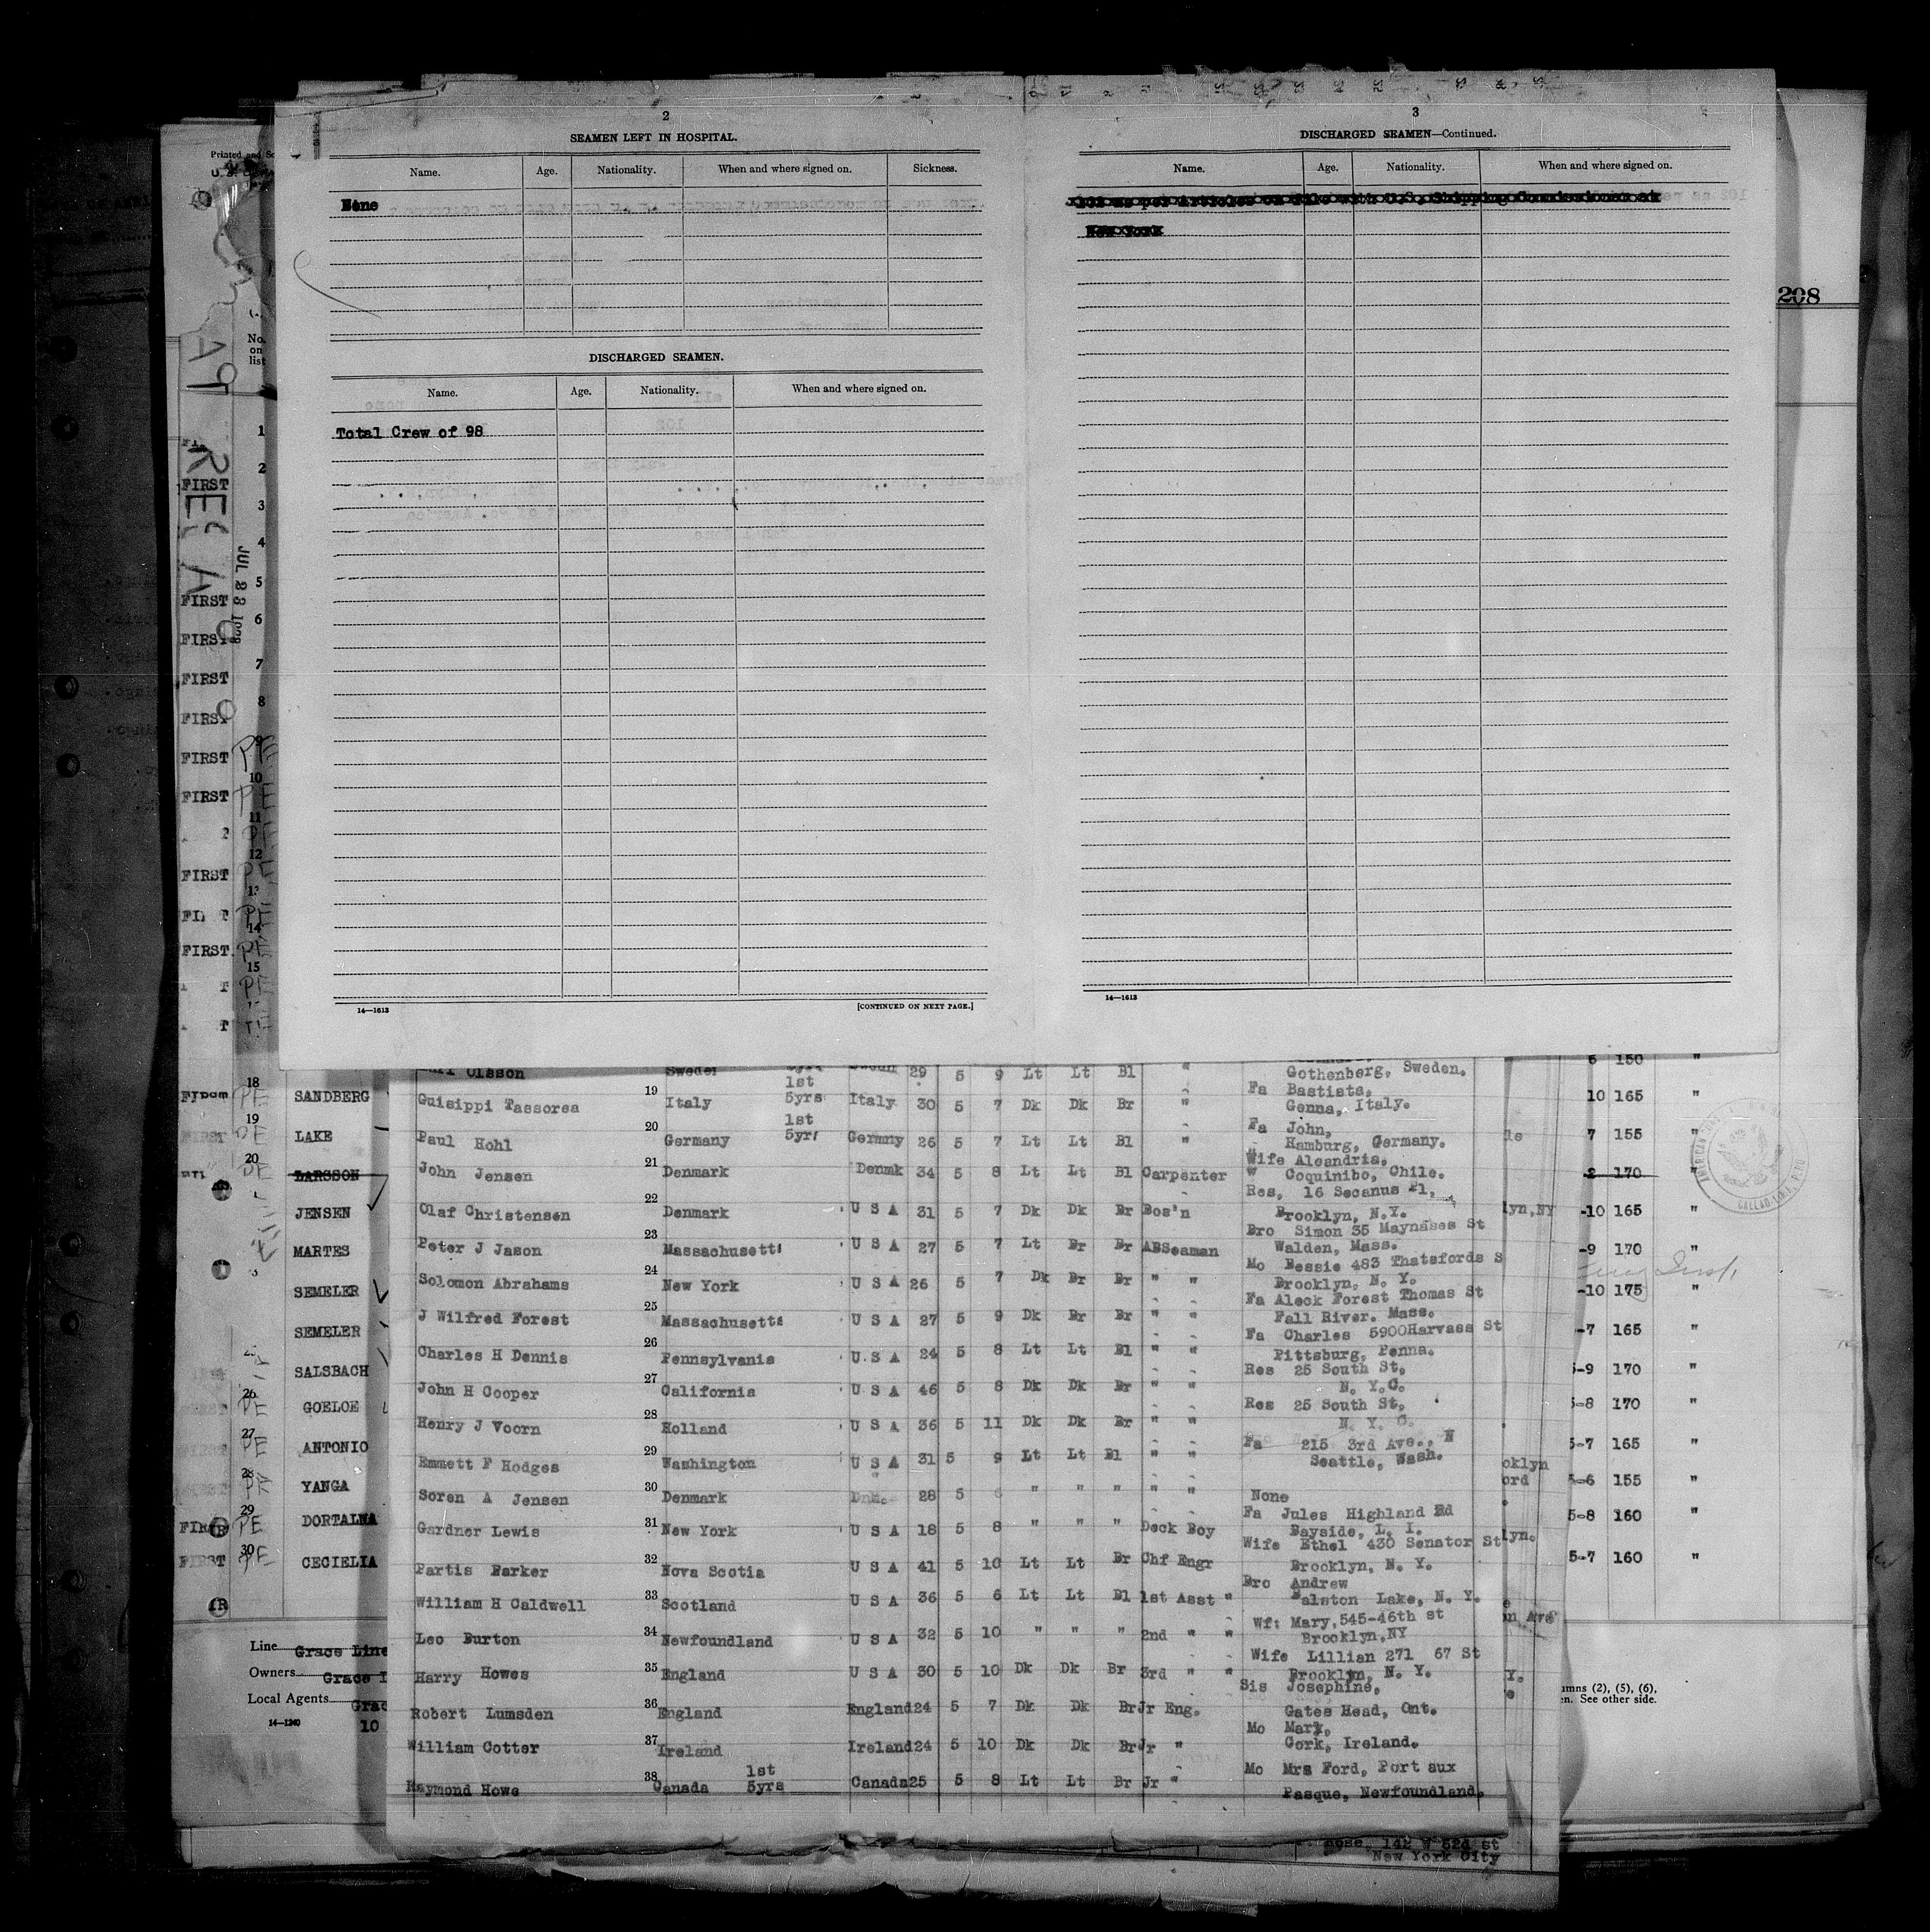 2
SEAMEN LEFT IN HOSPITAL.
Name. Age. Nationality. When and where signed on. Sickness.
None
DISCHARGED SEAMEN.
Name. Age. Nationality. When and where signed on.
Total Crew of 98
14—1613 [CONTINUED ON NEXT PAGE.]
3
DISCHARGED SEAMEN—Continued.
Name. Age. Nationality. When and where signed on.
102 as per Articles on file with U.S. Shipping Commissioner at
New York
14—1613
208
Printed and
No.
on
list
JUL 23
1
2
FIRST
3
4
5
FIRST
6
FIRST
7
FIRST
8
FIRST
9 PE
FIRST
10
FIRST PE
11
12
FIRST PE
13
PE
14
FIRST PE
15
PE
18
PE SANDBERG
19
FIRST PE LAKE
20
PE LARSSON
JENSEN
MARTES
SEMELER
SEMELER
SALSBACH
26
PE GOELOE
27
PE ANTONIO
28
PE YANGA
29
PE DORTALMA
30
FIRST PE CECIELIA
Line Grace Line
Owners Grace
Local Agents Grac
14—1240 10
Olsson Sweden 29 5 9 Lt Lt Bl "
Gothenberg, Sweden.
19 Guisippi Tassorea Italy 1st 5yrs Italy 30 5 7 Dk Dk Br " Fa Bastista,
Genna, Italy.
20 Paul Hohl Germany 1st 5yr Germny 26 5 7 Lt Lt Bl " Fa John,
Hamburg, Germany.
21 John Jensen Denmark Denmk 34 5 8 Lt Lt Bl Carpenter Wife Aleandria,
Coquinibo, Chile.
22 Olaf Christensen Denmark U S A 31 5 7 Dk Dk Br Bos'n Res, 16 Secanus Pl,
Brooklyn, N.Y.
23 Peter J Jason Massachusetts U S A 27 5 7 Lt Br Br ABSeaman Bro Simon 35 Maynases St
Walden, Mass.
24 Solomon Abrahams New York U S A 26 5 7 Dk Br Br " " Mo Bessie 483 Thatsfords S
Brooklyn, N. Y.
25 J Wilfred Forest Massachusetts U S A 27 5 9 Dk Br Br " " Fa Aleck Forest Thomas St
Fall River. Mass.
26 Charles H Dennis Pennsylvania U.S A 24 5 8 Lt Lt Bl " " Fa Charles 5900Harvass St
Pittsburg, Penna.
27 John H Cooper California U S A 46 5 8 Dk Dk Br " " Res 25 South St,
N. Y.C.
28 Henry J Voorn Holland U S A 36 5 11 Dk Dk Br " " Res 25 South St,
N. Y. C.
29 Emmett F Hodges Washington U S A 31 5 9 Lt Lt Bl " " Fa 215 3rd Ave., N
Seattle, Wash.
30 Soren A Jensen Denmark Dnk. 28 5 " " " " " None
31 Gardner Lewis New York U S A 18 5 8 " " " Deck Boy Fa Jules Highland Rd
Bayside, L. I.
32 Partis Parker Nova Scotia U S A 41 5 10 Lt Lt Br Chf Engr Wife Ethel 430 Senator St
Brooklyn, N. Y.
33 William H Caldwell Scotland U S A 36 5 6 Lt Lt Bl 1st Asst " Bro Andrew
Balston Lake, N. Y.
34 Leo Burton Newfoundland U S A 32 5 10 " " " 2nd " " Wf: Mary,545-46th st
Brooklyn,NY
35 Harry Howes England U S A 30 5 10 Dk Dk Br 3rd " " Wife Lillian 271 67 St
Brooklyn, N. Y.
36 Robert Lumsden England England 24 5 7 Dk Dk Br Jr Eng. Sis Josephine,
Gates Head, Ont.
37 William Cotter Ireland Ireland 24 5 10 Dk Dk Br Jr " Mo Mary,
Cork, Ireland.
38 Raymond Howe Canada 1st 5yrs Canada 25 5 8 Lt Lt Br Jr " Mo Mrs Ford, Port aux
Pasque, Newfoundland.
6 150 "
10 165 "
7 155 "
-2 170 "
lyn,NY -10 165 "
-9 170 "
-10 175 "
-7 165 "
5-9 170 "
5-8 170 "
5-7 165 "
oklyn
ord 5-6 155 "
5-8 160 "
lyn.
5-7 160 "
on Ave
umns (2), (5), (6).
en. See other side.
142 W 62d st
New York City